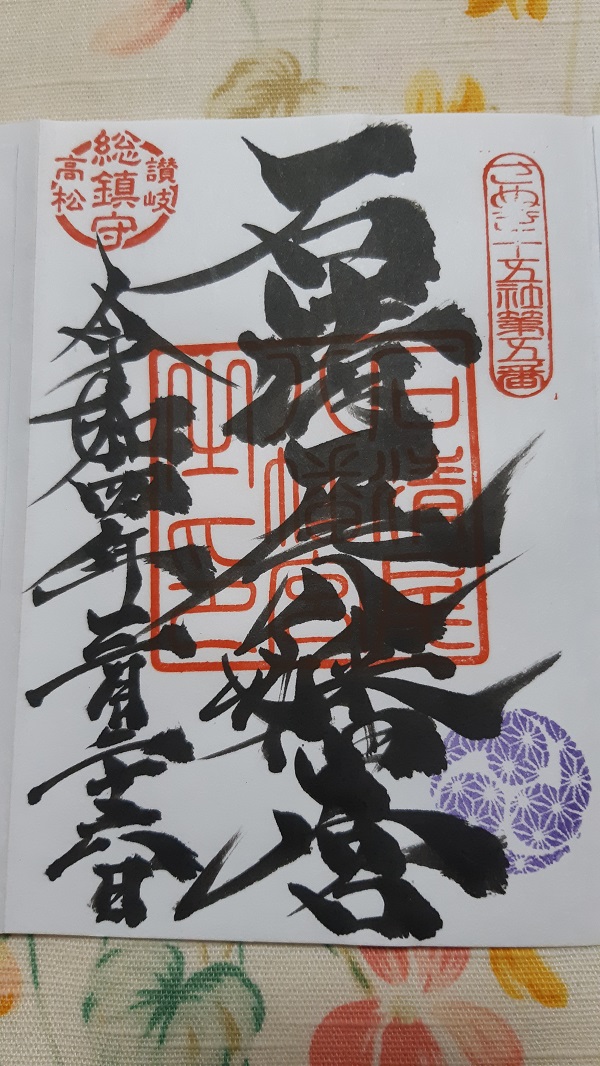 さぬき十五社第五番
石清尾八幡宮
石清尾
八幡宮
之印
讃岐
総鎮守
高松
令和四年 月二十六日